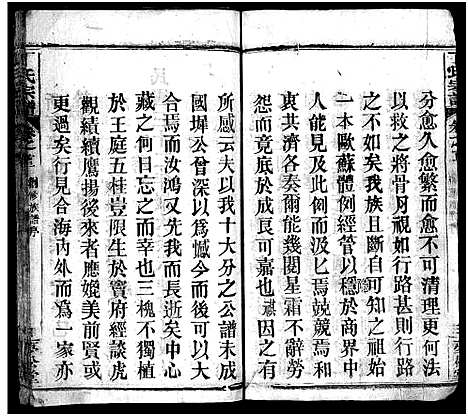 分愈久愈繁而愈不可清理更何法
以救之將骨月視如行路甚則行路
之不如矣我族且斷自可知之祖始
一本歐蘇體例經管以穩於商界中
人能見及此今而汲汲焉競競焉相
裒共濟各奏爾能幾閱星霜不辭勞
怨而善成之良可嘉也然因之有
所感云夫以我十大分之公譜未成
國墀公曾深以為憾今𢬵修之譜方
合焉而汝鴻又先我而長逝矣中心
藏之何日忘之而幸也三槐不獨植
於王庭五桂豈限生於竇府經談虎
觀績續鷹揚後來者應媲美前賢或
更過矣行見合海內外而為一家亦
氏宗譜
卷之首
創修族譜序